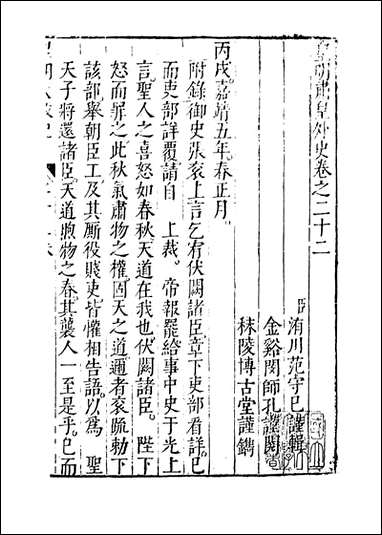 皇明肅皇外史卷之二十二
臣洧川范守己謹輯
金谿閔師孔謹閱
秣陵博古堂謹鐫
丙戌嘉靖五年春正月。
附錄御史張袞上言乞宥伏闕諸臣章下吏部看詳。已
而吏部詳覆請自　上裁。帝報罷給事中史于光上
言。聖人之喜怒如春秋天道在我也伏闕諸臣。　陛下
怒而罪之此秋氣肅物之權。因天之道。邇者袞疏勅下
該部舉朝臣工及其厮役賤吏皆懽相告語。以爲　聖
天子將還諸臣。天道煦物之春。其襲人一至是乎。已而